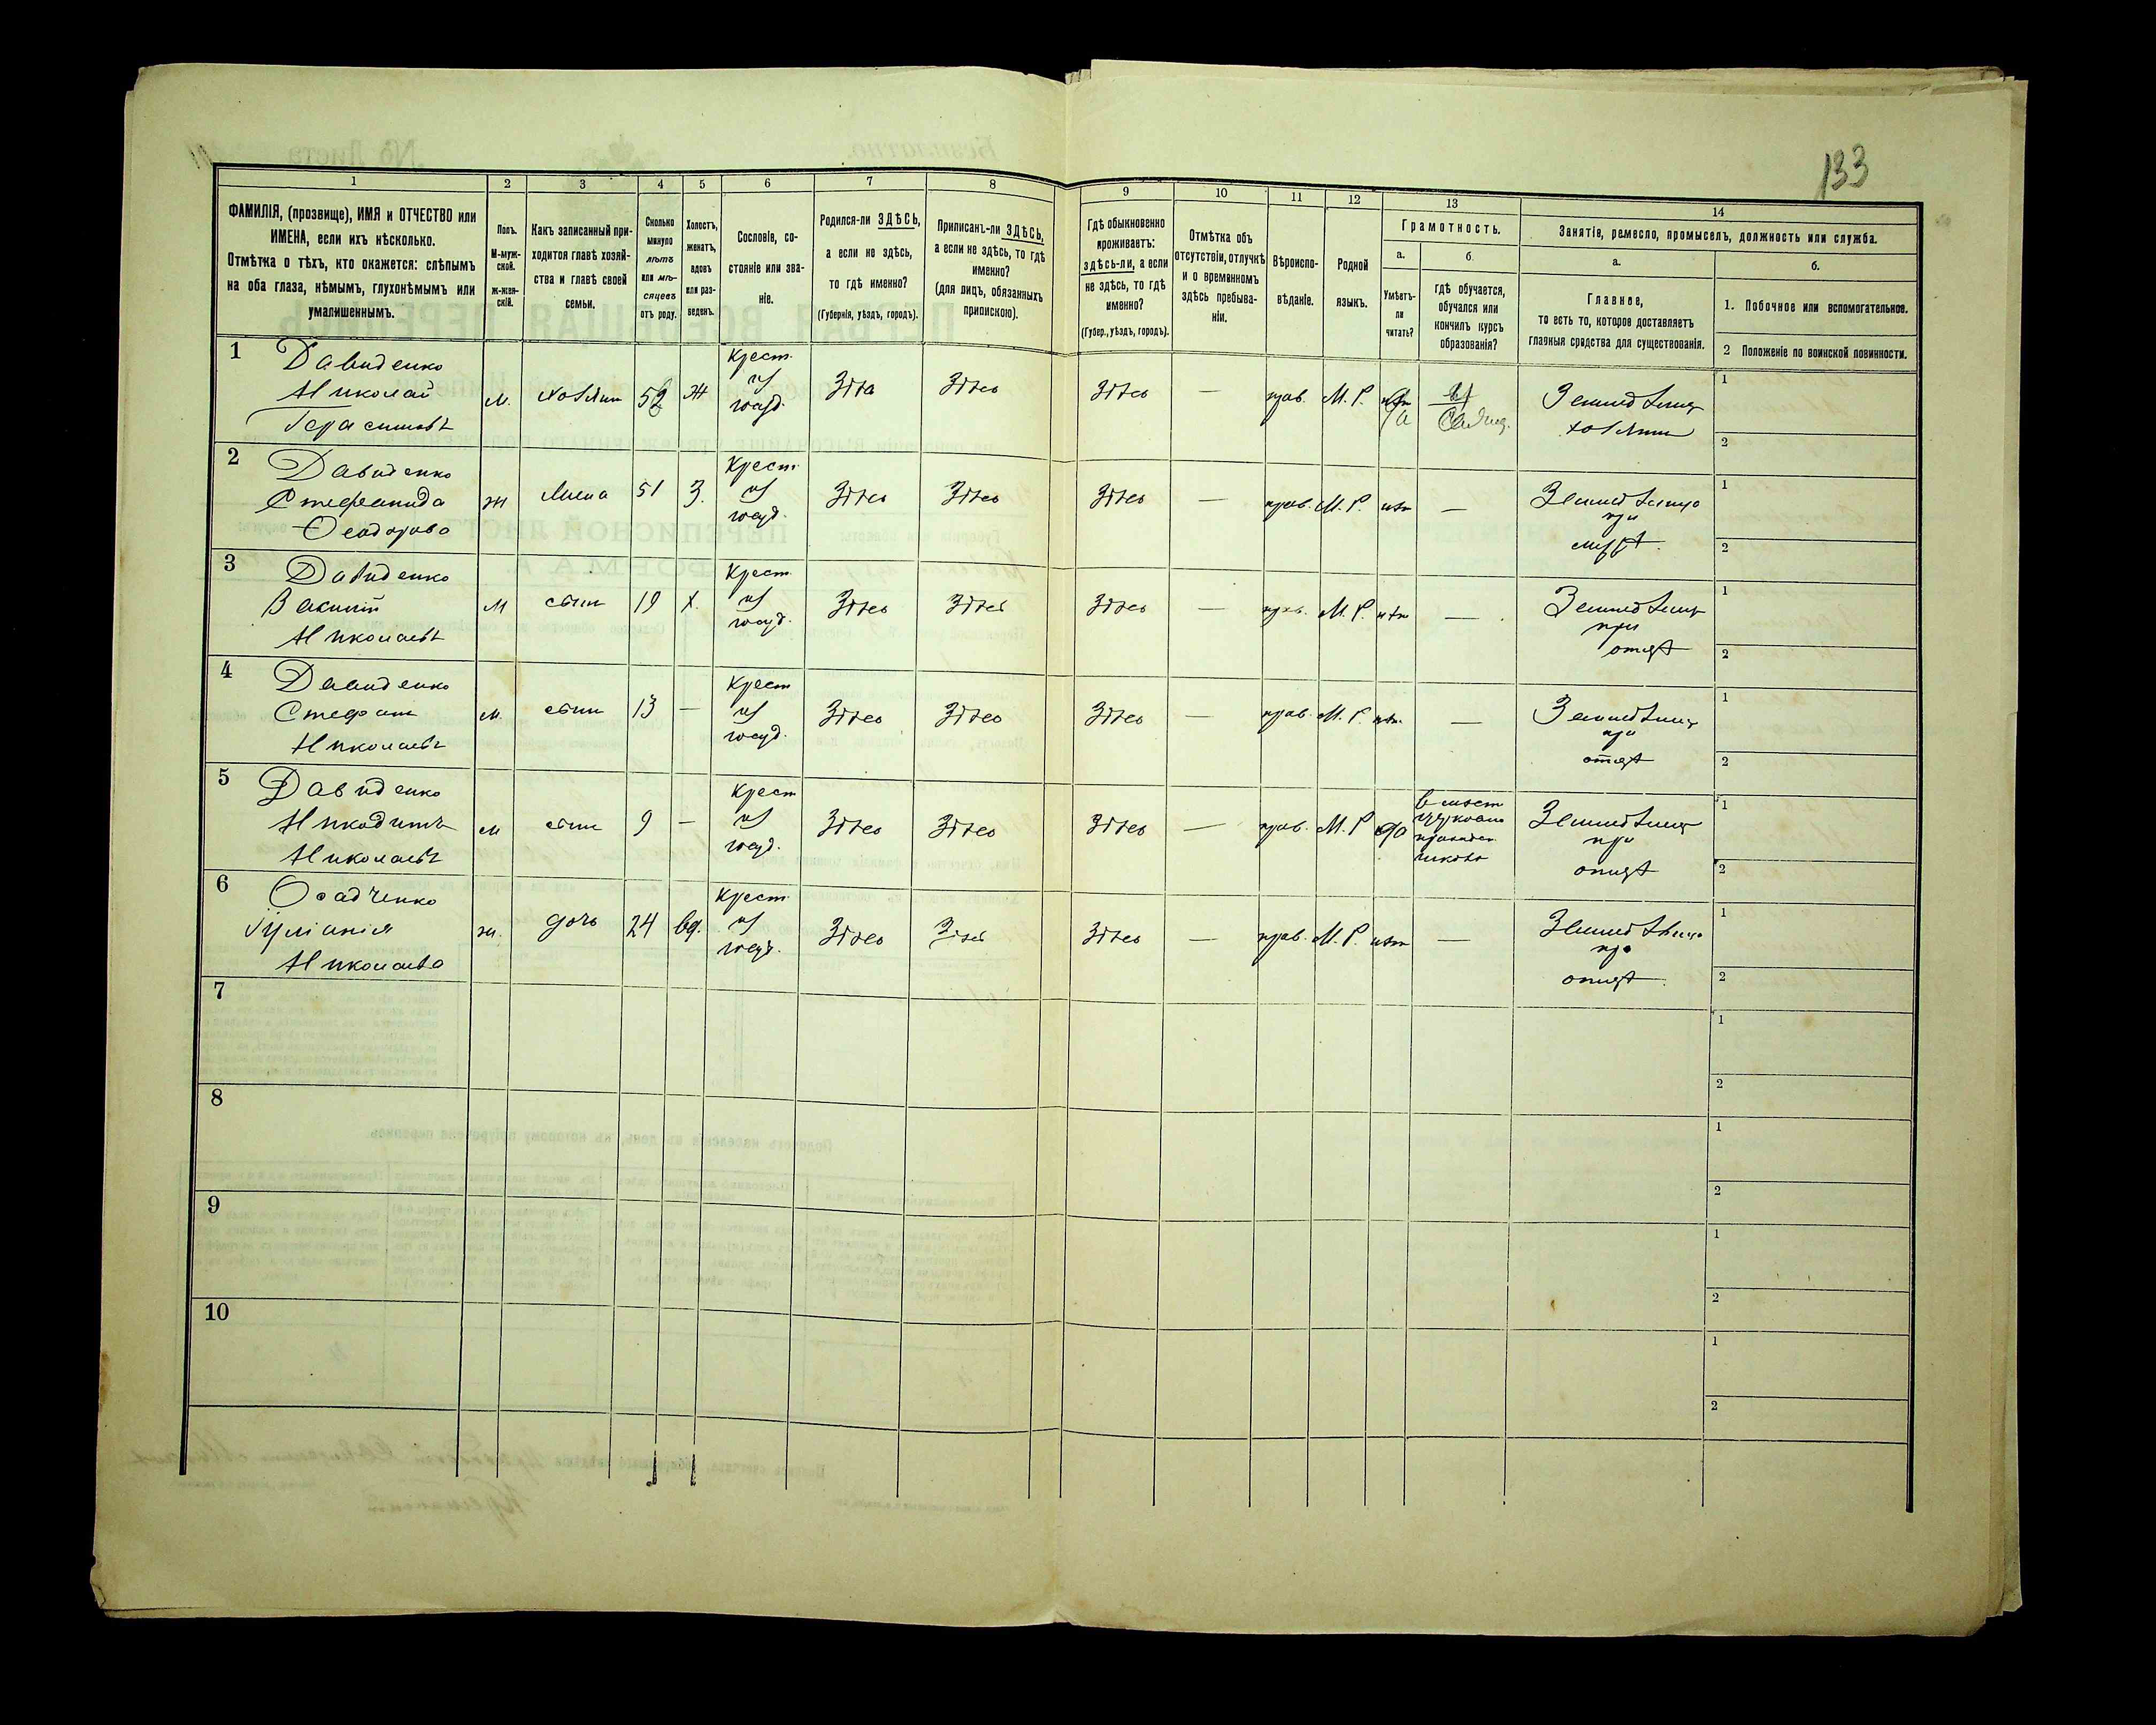 133
1
2
3
4
5
6
7
8
9
10
11
12
13
14
ФАМИЛІЯ, (прозвище), ИМЯ и ОТЧЕСТВО или
ИМЕНА, если ихъ нѣсколько.
Отмѣтка о тѣхъ, кто окажется: слѣпымъ
на оба глаза, нѣмымъ, глухонѣмымъ или
умалишеннымъ.
Полъ.
М-муж-
ской.
ж-жен-
скій.
Какъ записанный при-
ходится главѣ хозяй-
ства и главѣ своей
семьи.
Сколько
минуло
лѣтъ
или мѣ-
сяцевъ
отъ роду.
Холостъ,
женатъ,
вдовъ
или раз-
веденъ.
Сословіе, со-
стояніе или зва-
ніе.
Родился-ли ЗДѢСЬ,
а если не здѣсь,
то гдѣ именно?
(Губернія, уѣздъ, городъ).
Приписанъ-ли ЗДѢСЬ,
а если не здѣсь, то гдѣ
именно?
(для лицъ, обязанныхъ
припискою).
Гдѣ обыкновенно
проживаетъ:
здѣсь-ли, а если
не здѣсь, то гдѣ
именно?
(Губер., уѣздъ, городъ).
Отмѣтка объ
отсутствіи, отлучкѣ
и о временномъ
здѣсь пребыва-
ніи.
Вѣроиспо-
вѣданіе.
Родной
языкъ.
Грамотность.
а.
Умѣетъ-
ли
читать?
б.
гдѣ обучается,
обучался или
кончилъ курсъ
образованія?
Занятіе, ремесло, промыселъ, должность или служба.
а.
Главное,
то есть то, которое доставляетъ
главныя средства для существованія.
б.
1. Побочное или вспомогательное.
2 Положеніе по воинской повинности.
1 Давиденко
Николай
Герасимовъ
м.
хозяин
52
ж
крест.
из
госуд.
Здѣсь
Здѣсь
Здѣсь
—
прав.
М. Р.
да
Земледѣлец
хозяин
1
2
2 Давиденко
Стефанида
Феодорова
ж
жена
51
З.
крест.
из
госуд.
Здѣсь
Здѣсь
Здѣсь
—
прав.
М. Р.
нѣт
—
Земледѣлица
при
мужѣ.
1
2
3 Давиденко
Николаевъ
м
сын
19
х.
крест.
из
госуд.
Здѣсь
Здѣсь
Здѣсь
—
прав.
М. Р.
нѣт
—
Земледѣлец
при
отцѣ
1
2
4 Давиденко
Стефан
Николаевъ
м.
сын
13
—
крест
из
госуд.
Здѣсь
Здѣсь
Здѣсь
—
прав.
М. Р.
нѣт.
—
Земледѣлец
при
отцѣ
1
2
5 Давиденко
Никодимъ
Николаевъ
м
сын
9
—
крест
из
госуд.
Здѣсь
Здѣсь
Здѣсь
—
прав.
М. Р
да
Земледѣлец
при
отцѣ
1
2
6 Осадченко
Іуліанія
Николаева
ж.
дочь
24
вд.
крест.
из
госуд.
Здѣсь
Здѣсь
Здѣсь
—
прав.
М. Р.
нѣт
—
Земледѣлица
при
отцѣ.
1
2
7
1
2
8
1
2
9
1
2
10
1
2